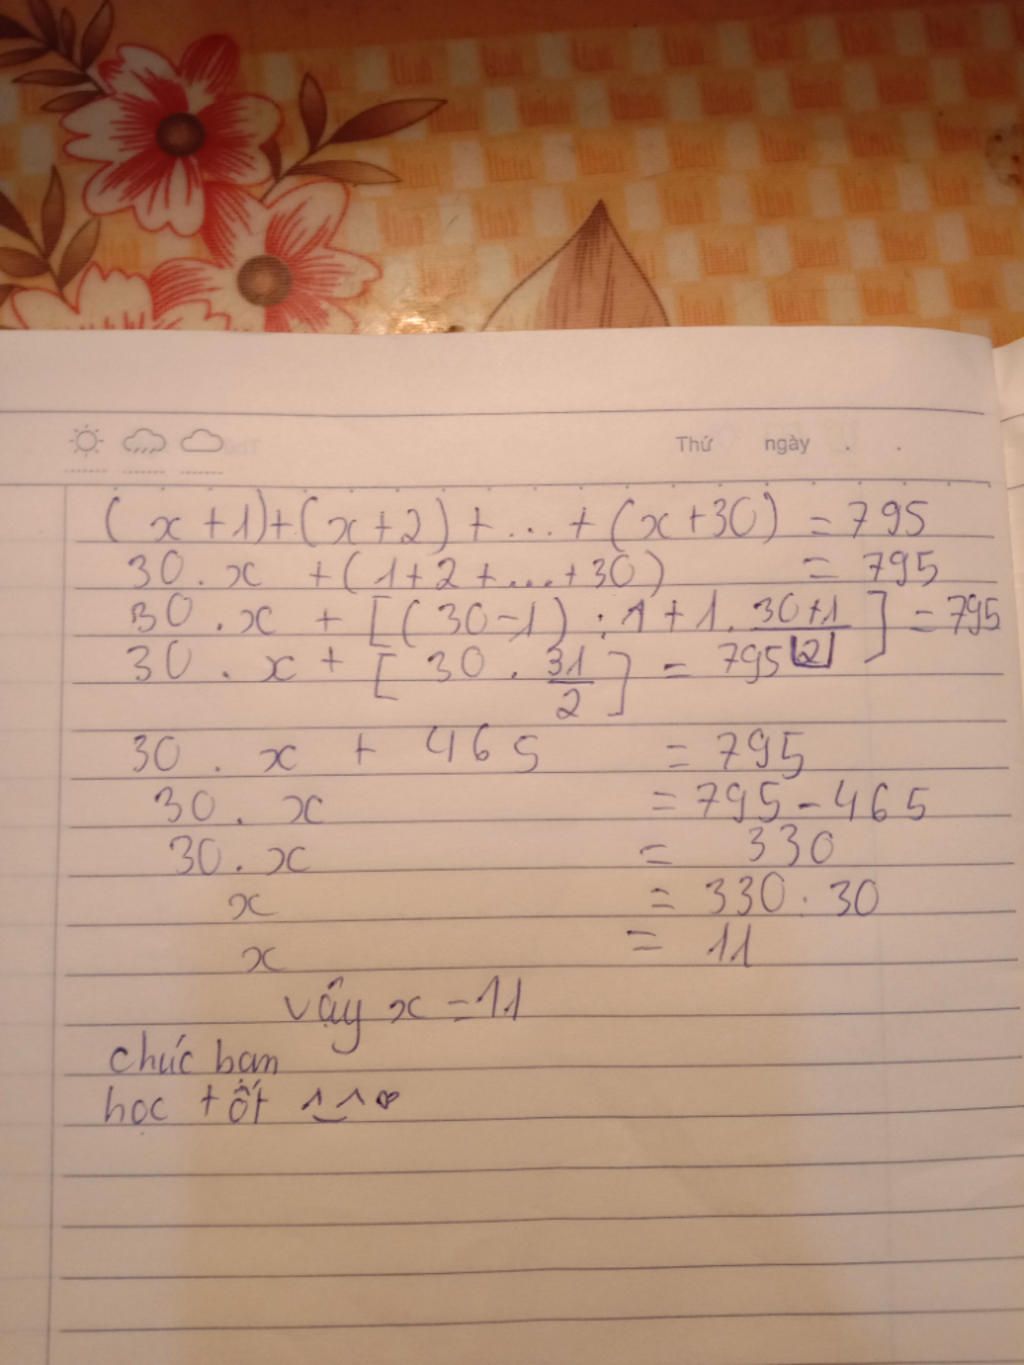 Thứ ngày . .
(x+1)+(x+2)+...+(x+30) = 795
30.x +(1+2+...+30) = 795
30.x + [(30-1):1+1.\frac{30+1}{2}] = 795
30.x + [30.\frac{31}{2}] = 795
30.x + 465 = 795
30.x = 795-465
30.x = 330
x = 330:30
x = 11
vậy x = 11
chúc bạn
học tốt ^_^♥